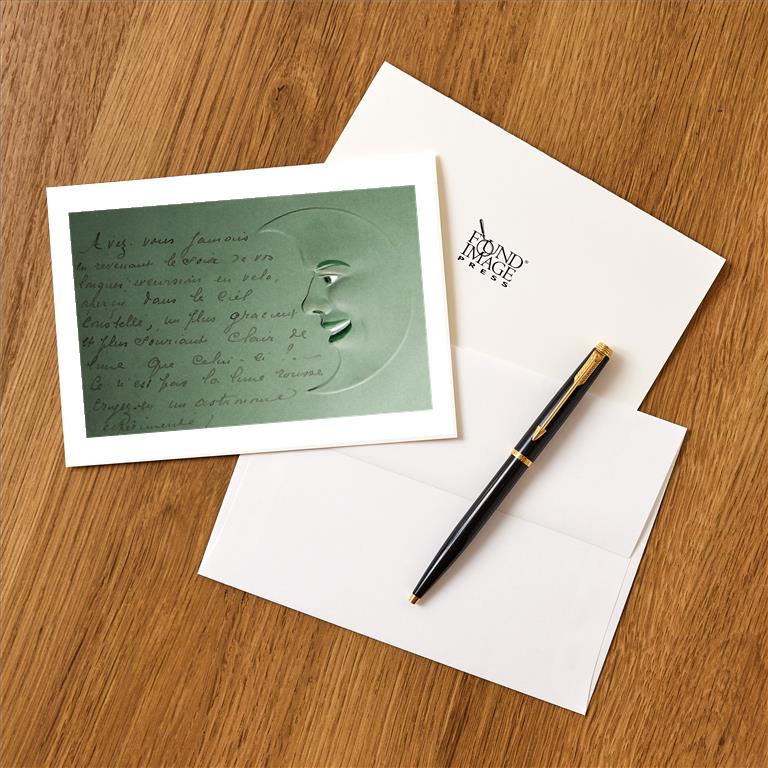 Avez-vous jamais
en revenant le soir de vos
longues excursions en vélo,
aperçu dans le ciel
constellé, un plus gracieux
et plus souriant clair de
lune que celui-ci ?
Ce n'est pas la lune rousse
croyez-en un astronome
expérimenté !
FOUND
IMAGE
PRESS